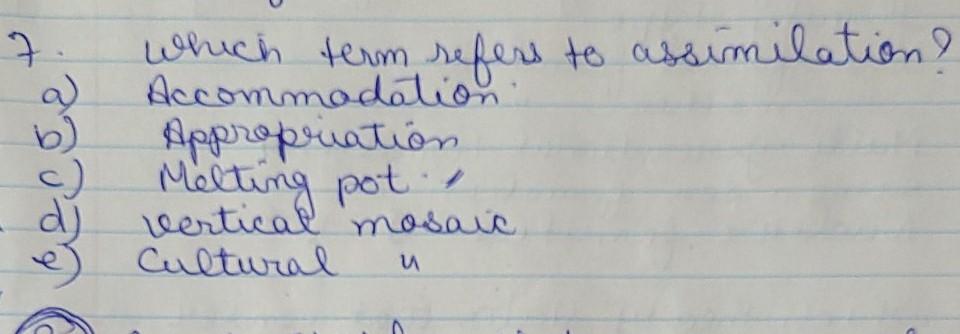 7. which term refers to assimilation?
a) Accommodation
b) Appropriation
c) Melting pot
d) vertical mosaic
e) Cultural "